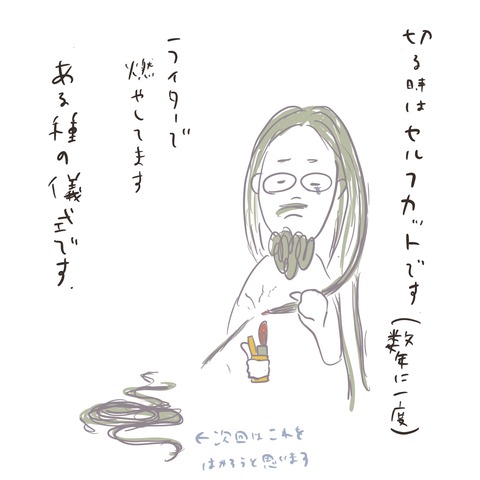 切る時はセルフカットです(数年に一度)
ライターで
燃やしてます
ある種の儀式です.
←次回はこれを
はかろうと思います